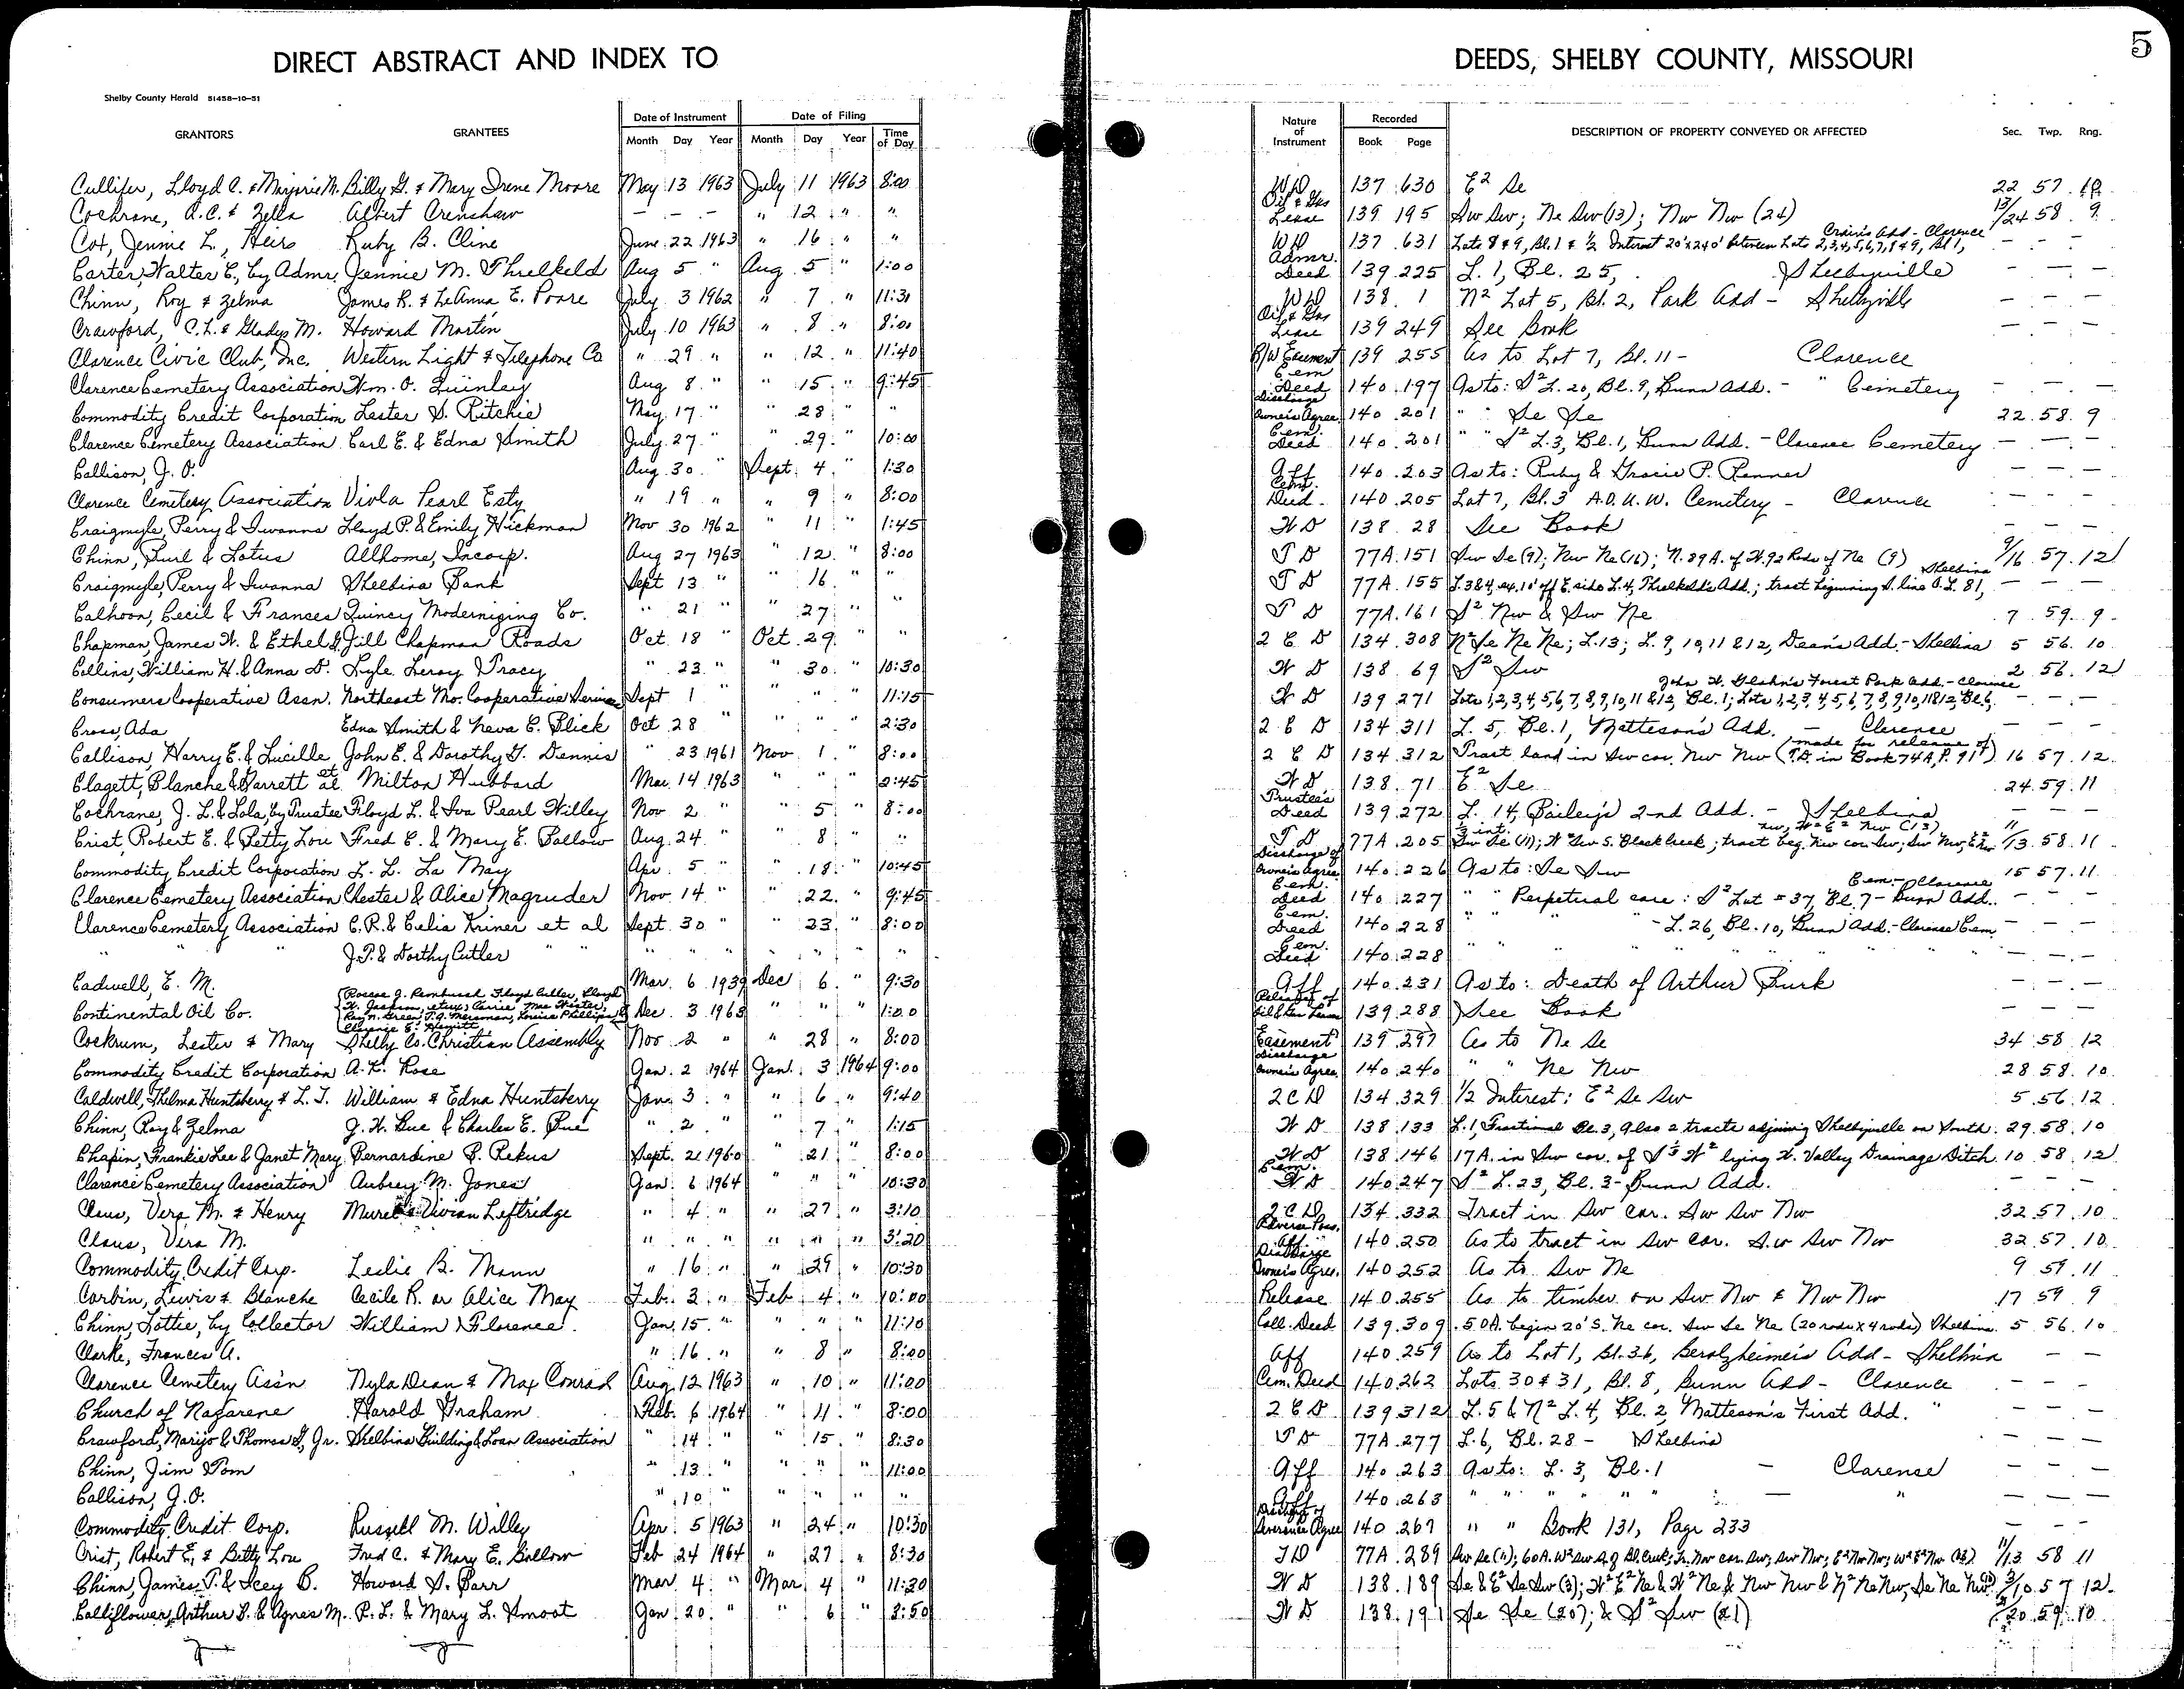 DIRECT ABSTRACT AND INDEX TO
DEEDS, SHELBY COUNTY, MISSOURI
5
Shelby County Herald 51458-10-51
GRANTORS GRANTEES Date of Instrument Month Day Year Date of Filing Month Day Year Time of Day Nature of Instrument Recorded Book Page DESCRIPTION OF PROPERTY CONVEYED OR AFFECTED Sec. Twp. Rng.
Cullifer, Lloyd C. & Marjorie M. Billy G. & Mary Irene Moore May 13 1963 July 11 1963 8:00 WD 137 630 E² Se 22 57 10
Cochrane, A.C. & Zella Albert Crenshaw - - - " 12 " " Oil & Gas Lease 139 195 Sw Sw; Ne Sw (13); Nw Nw (24) 13/24 58 9
Cox, Jennie L., Heirs Ruby B. Cline June 22 1963 " 16 " " WD 137 631 Lots 8 & 9, Bl. 1 & ½ Interest 20'x240' between Lots 2,3,4,5,6,7,8 & 9, Bl 1, Crain's Add - Clarence - - -
Carter, Walter C., by Admr. Jennie M. Threlkeld Aug 5 " Aug 5 " 1:00 Admr. Deed 139 225 L. 1, Bl. 25, Shelbyville - - -
Chinn, Roy & Zelma James R. & LeAnna E. Poore July 3 1962 " 7 " 11:31 WD 138 1 N² Lot 5, Bl. 2, Park Add - Shelbyville - - -
Crawford, C.L. & Gladys M. Howard Martin July 10 1963 " 8 " 8:00 Oil & Gas Lease 139 249 See Book - - -
Clarence Civic Club, Inc. Western Light & Telephone Co " 29 " " 12 " 11:40 R/W Easement 139 255 As to Lot 7, Bl. 11 - Clarence
Clarence Cemetery Association Wm. O. Quinley Aug 8 " " 15 " 9:45 Cem Deed 140 197 As to: S² L. 20, Bl. 9, Bunn Add. - " Cemetery - - -
Commodity Credit Corporation Lester S. Ritchie May 17 " " 28 " " Discharge Owner's Agree. 140 201 " " Se Se 22 58 9
Clarence Cemetery Association Carl E. & Edna Smith July 27 " " 29 " 10:00 Cem. Deed 140 201 " " S² L.3, Bl. 1, Bunn Add. - Clarence Cemetery - - -
Callison, J. O. Aug 30 " Sept 4 " 1:30 Aff 140 203 As to: Ruby & Gracie P. Renner - - -
Clarence Cemetery Association Viola Pearl Esty " 19 " " 9 " 8:00 Cem. Deed 140 205 Lot 7, Bl. 3 A.O.U.W. Cemetery - Clarence - - -
Craigmyle, Perry & Iwanna Lloyd P. & Emily Hickman Nov 30 1962 " 11 " 1:45 WD 138 28 See Book - - -
Chinn, Burl & Lotus Allhome, Incorp. Aug 27 1963 " 12 " 8:00 TD 77A 151 Sw Se (9); Nw Ne (16); N. 39 A. of W. 92 Rods of Ne (9) 9/16 57 12
Craigmyle, Perry & Iwanna Shelbina Bank Sept 13 " " 16 " " TD 77A 155 L. 3&4, ex. 10' off E. side L. 4, Threlkeld's Add.; tract beginning S. line O.L. 81, Shelbina - - -
Calhoon, Cecil & Frances Quincy Modernizing Co. " 21 " " 27 " " TD 77A 161 S² Nw & Sw Ne 7 59 9
Chapman, James W. & Ethel G. Jill Chapman Roads Oct 18 " Oct 29 " " 2 C D 134 308 N² Se Ne Ne; L.13; L. 9, 10, 11 & 12, Dean's Add. - Shelbina 5 56 10
Collins, William H. & Anna D. Lyle Leroy Tracy " 23 " " 30 " 10:30 WD 138 69 S² Sw 2 56 12
Consumers Cooperative Assn. Northeast Mo. Cooperative Service Sept 1 " " " " 11:15 WD 139 271 Lots 1,2,3,4,5,6,7,8,9,10,11 & 12, Bl. 1; Lots 1,2,3,4,5,6,7,8,9,10,11&12 Bl. 6, Forest Park Add. - Clarence - - -
Cross, Ada Edna Smith & Neva C. Blick Oct 28 " " " " 2:30 2 C D 134 311 L. 5, Bl. 1, Matteson's Add. - Clarence - - -
Callison, Harry E. & Lucille John E. & Dorothy G. Dennis " 23 1961 Nov 1 " 8:00 2 C D 134 312 Tract land in Sw cor. Nw Nw (made for release of T.D. in Book 74A, P. 91) 16 57 12
Clagett, Blanche & Garrett et al Milton Hubbard Mar 14 1963 " " " 2:45 WD 138 71 E² Se 24 59 11
Cochrane, J. L. & Lola, by Trustee Floyd L. & Iva Pearl Willey Nov 2 " " 5 " 8:00 Trustee's Deed 139 272 L. 14, Bailey's 2nd Add. - Shelbina - - -
Crist, Robert E. & Betty Lou Fred C. & Mary E. Ballow Aug 24 " " 8 " " TD 77A 205 Sw Se (11); W² Sw S. Black Creek; tract beg. Nw cor Sw; Sw Nw; 11/13 58 11
Commodity Credit Corporation L. L. La May Apr 5 " " 18 " 10:45 Discharge of Owner's Agree. 140 226 As to: Se Sw 15 57 11
Clarence Cemetery Association Chester & Alice Magruder Nov 14 " " 22 " 9:45 Cem. Deed 140 227 " " Perpetual care: S² Lot #37, Bl. 7 - Bunn Add. Cem. - Clarence - - -
Clarence Cemetery Association C.R. & Celia Kriner et al Sept 30 " " 23 " 8:00 Cem. Deed 140 228 " " " - L. 26, Bl. 10, Bunn Add. - Clarence Cem. - - -
" " J.P. & Dorthy Cutler " " " " " " " Cem. Deed 140 228 " " " " " " - - -
Cadwell, E. M. Mar. 6 1939 Dec 6 " 9:30 Aff 140 231 As to: Death of Arthur Burk - - -
Continental Oil Co. Dec. 3 1963 " " " 1:00 Release of Oil & Gas Lease 139 288 See Book - - -
Cockrum, Lester & Mary Shelby Co. Christian Assembly Nov 2 " " 28 " 8:00 Easement 139 297 As to Ne Se 34 58 12
Commodity Credit Corporation A. K. Rose Jan. 2 1964 Jan. 3 1964 9:00 Discharge Owner's Agree. 140 240 " " Ne Nw 28 58 10
Caldwell, Thelma Huntsberry & L. T. William & Edna Huntsberry Jan 3 " " 6 " 9:40 2 C D 134 329 ½ Interest: E² Se Sw 5 56 12
Chinn, Roy & Zelma J. W. Rue & Charles E. Rue " 2 " " 7 " 1:15 WD 138 133 L. 1, Fractional Bl. 3, also 2 tracts adjoining Shelbyville on South 29 58 10
Chapin, Frankie Lee & Janet Mary Bernardine B. Rekus Sept. 21 1960 " 21 " 8:00 WD 138 146 17 A. in Sw cor. of S½ W² lying W. Valley Drainage Ditch 10 58 12
Clarence Cemetery Association Aubrey M. Jones Jan. 6 1964 " " " 10:30 Cem. WD 140 247 S² L. 23, Bl. 3 - Bunn Add. - - -
Claus, Vera M. & Henry Vivian Leftridge " 4 " " 27 " 3:10 2 C D 134 332 Tract in Sw cor. Sw Sw Nw 32 57 10
Claus, Vera M. " " " " " " 3:20 Adverse Poss. Aff. 140 250 As to tract in Sw cor. Sw Sw Nw 32 57 10
Commodity Credit Corp. Leslie B. Mann " 16 " " 29 " 10:30 Discharge Owner's Agree. 140 252 As to Sw Ne 9 59 11
Corbin, Lewis & Blanche Cecile R. or Alice May Feb. 3 " Feb 4 " 10:00 Release 140 255 As to timber on Sw Nw & Nw Nw 17 59 9
Chinn, Lottie, by Collector William Florence Jan. 15 " " " " 11:10 Coll. Deed 139 309 .50A. begin 20' S. Ne cor. Sw Se Ne (20 rods x 4 rods) Shelbina 5 56 10
Clarke, Frances A. " 16 " " 8 " 8:00 Aff 140 259 As to Lot 1, Bl. 36, Berolzheimer's Add - Shelbina - -
Clarence Cemetery Ass'n Nyla Dean & Max Conrad Aug 12 1963 " 10 " 11:00 Cem. Deed 140 262 Lots 30 & 31, Bl. 8, Bunn Add - Clarence - - -
Church of Nazarene Harold Graham Feb. 6 1964 " 11 " 8:00 2 C D 139 312 L. 5 & N² L. 4, Bl. 2, Matteson's First Add. " - - -
Crawford, Marijo & Thomas G., Jr. Shelbina Building & Loan Association " 14 " " 15 " 8:30 TD 77A 277 L. 6, Bl. 28 - Shelbina - - -
Chinn, Jim Tom " 13 " " " " 11:00 Aff 140 263 As to: L. 3, Bl. 1 - Clarence - - -
Callison, J. O. " 10 " " " " " Aff 140 263 " " " " " - " - - -
Commodity Credit Corp. Russell M. Willey Apr. 5 1963 " 24 " 10:30 Discharge of Agree 140 267 " " Book 131, Page 233 - - -
Crist, Robert E. & Betty Lou Fred C. & Mary E. Ballow Feb 24 1964 " 27 " 8:30 TD 77A 289 Sw Se (11); 60A. W² Sw S. of Bl. Creek; Tr. Nw cor. Sw; Sw Nw; E² Nw Nw; W² E² Nw (13) 11/13 58 11
Chinn, James T. & Icey B. Howard S. Barr Mar. 4 " Mar 4 " 11:20 WD 138 189 Se & E² Se Sw (3); W² E² Ne & W² Ne & Nw Nw & N² Ne Nw, Se Ne Nw (10) 3/10 57 12
Calliflower, Arthur L. & Agnes M. P. L. & Mary L. Smoot Jan 20 " " 6 " 8:50 WD 138 191 Se Se (20); & S² Sw (21) 21/20 59 10